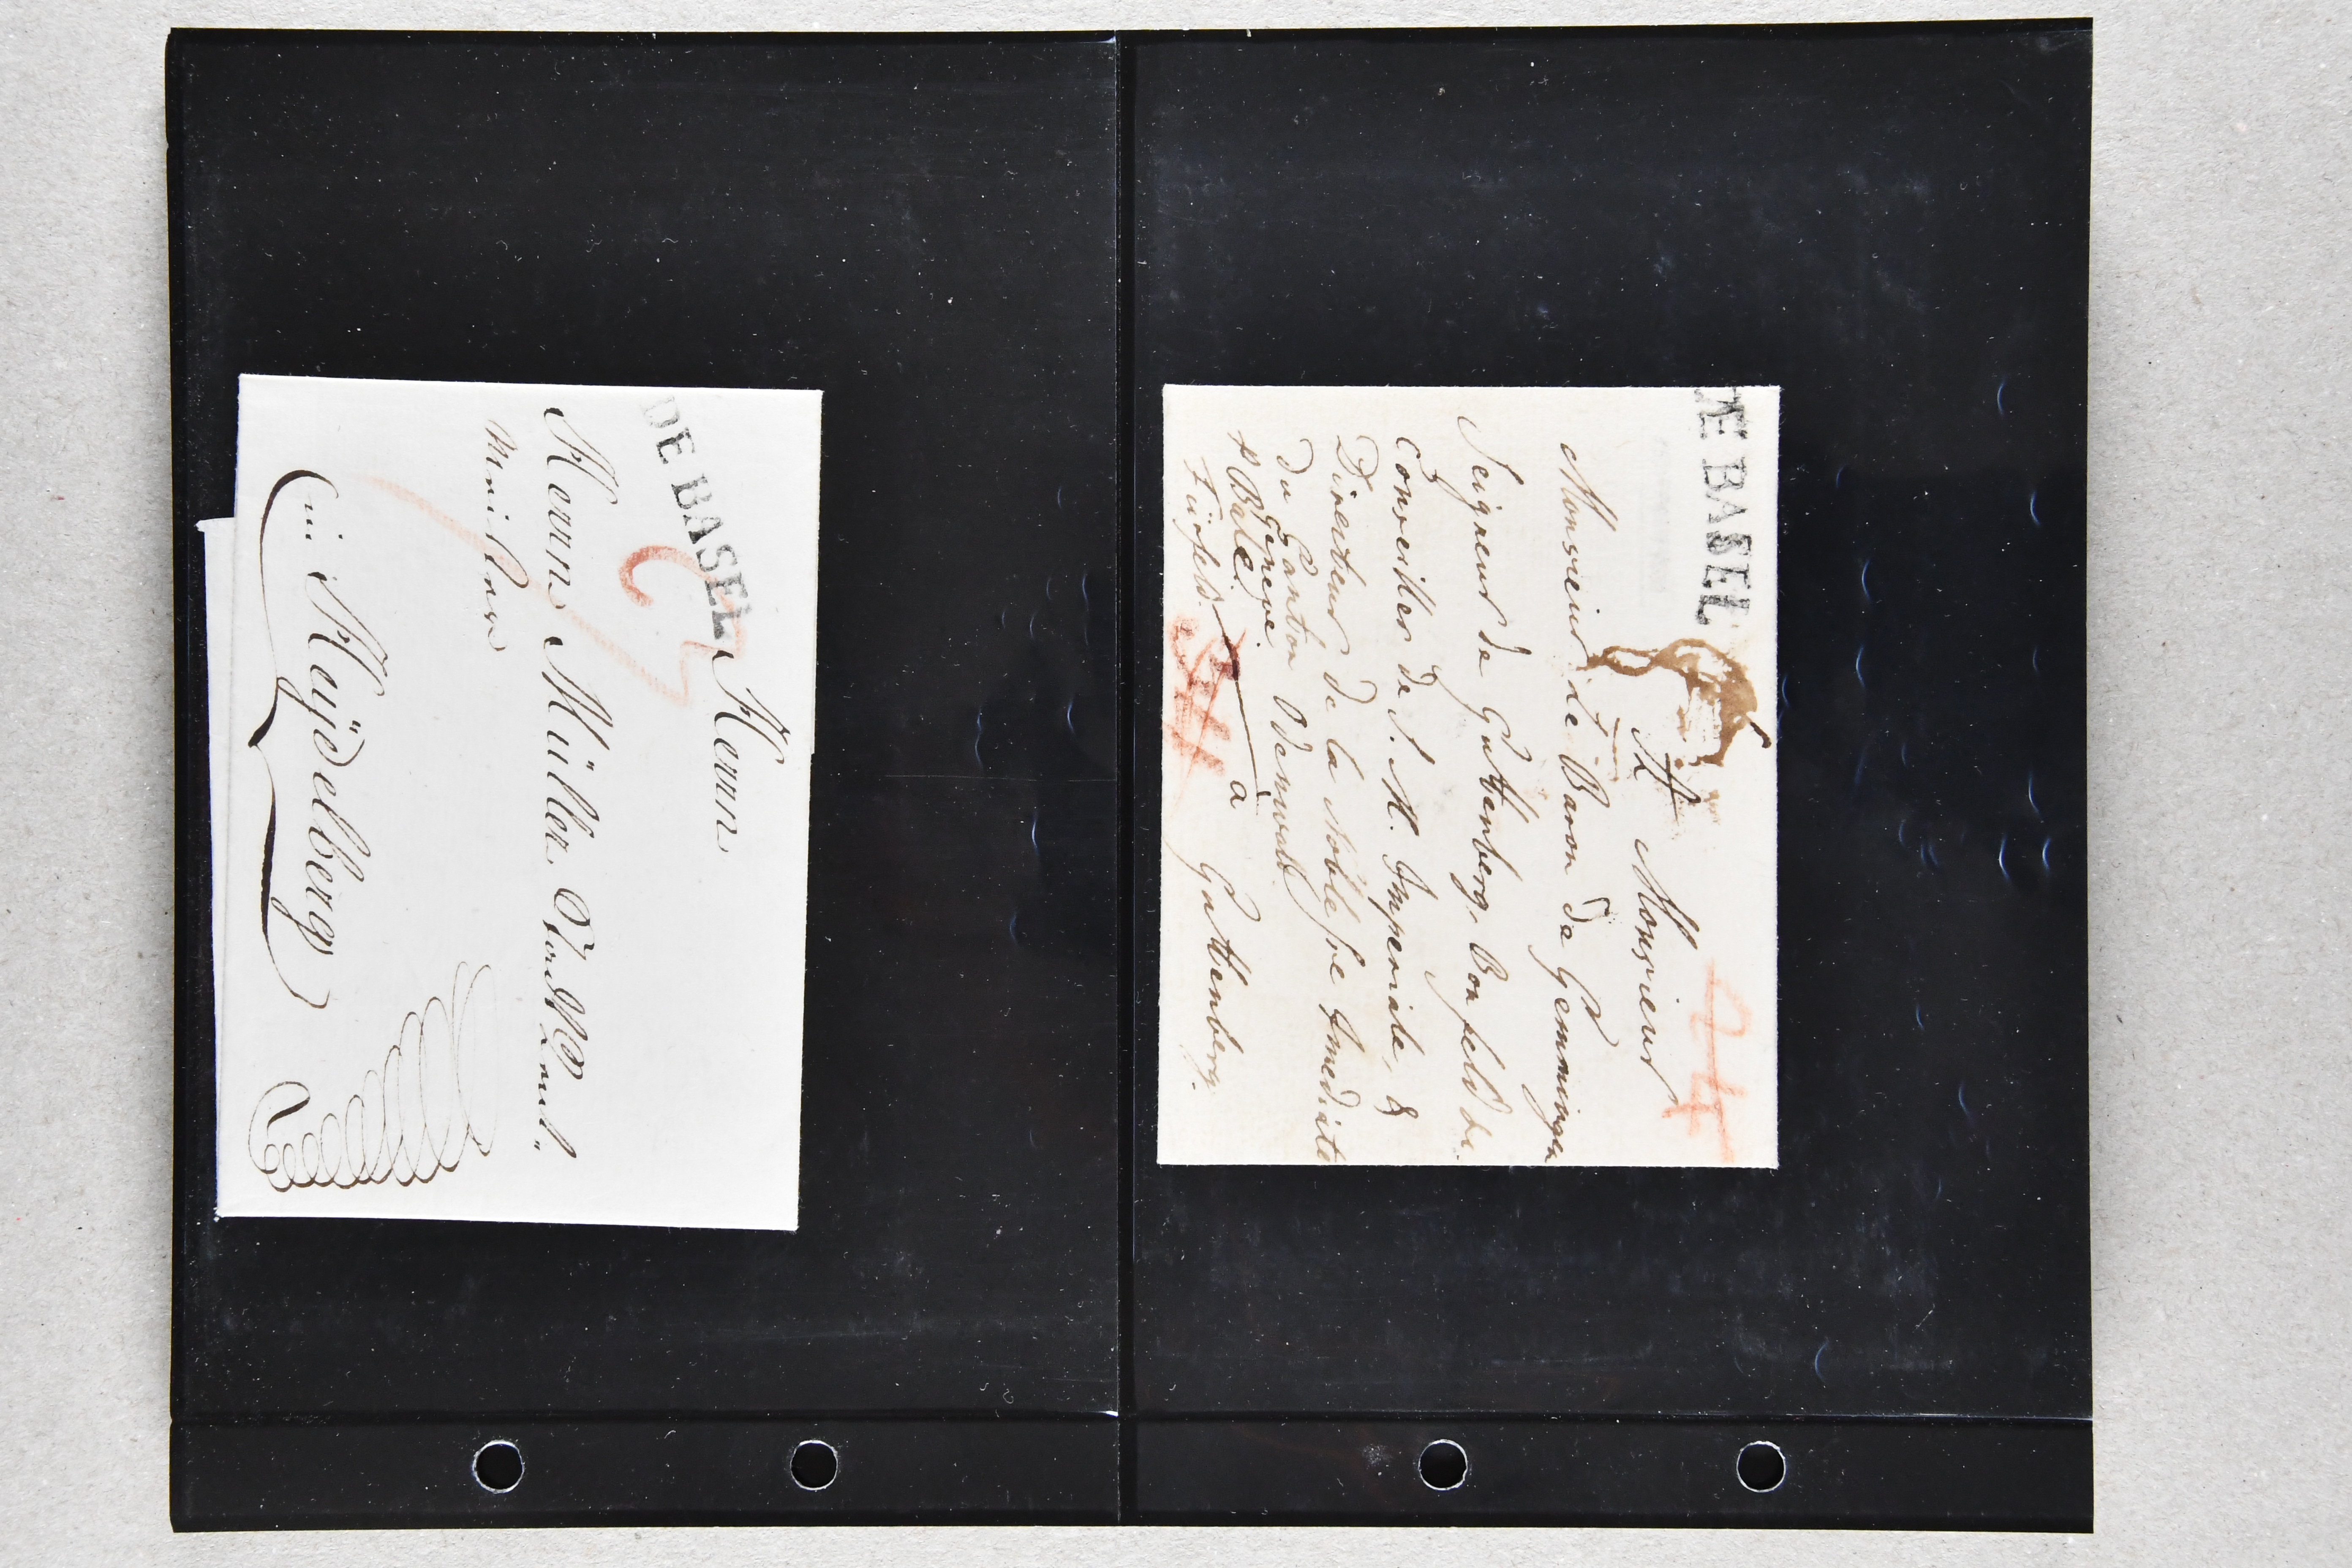 DE BASEL
Herrn
Herrn Müller
in Heÿdelberg
DE BASEL
24
A Monsieur
Monsieur le Baron de Gemmingen
Seigneur de Guttenberg, Bonfeld &c.
Conseiller de S. M. Imperiale, &
Directeur de la Noblesse Imediate
du Canton Odenwald
Geneve.
Bale.
à Guttenberg.